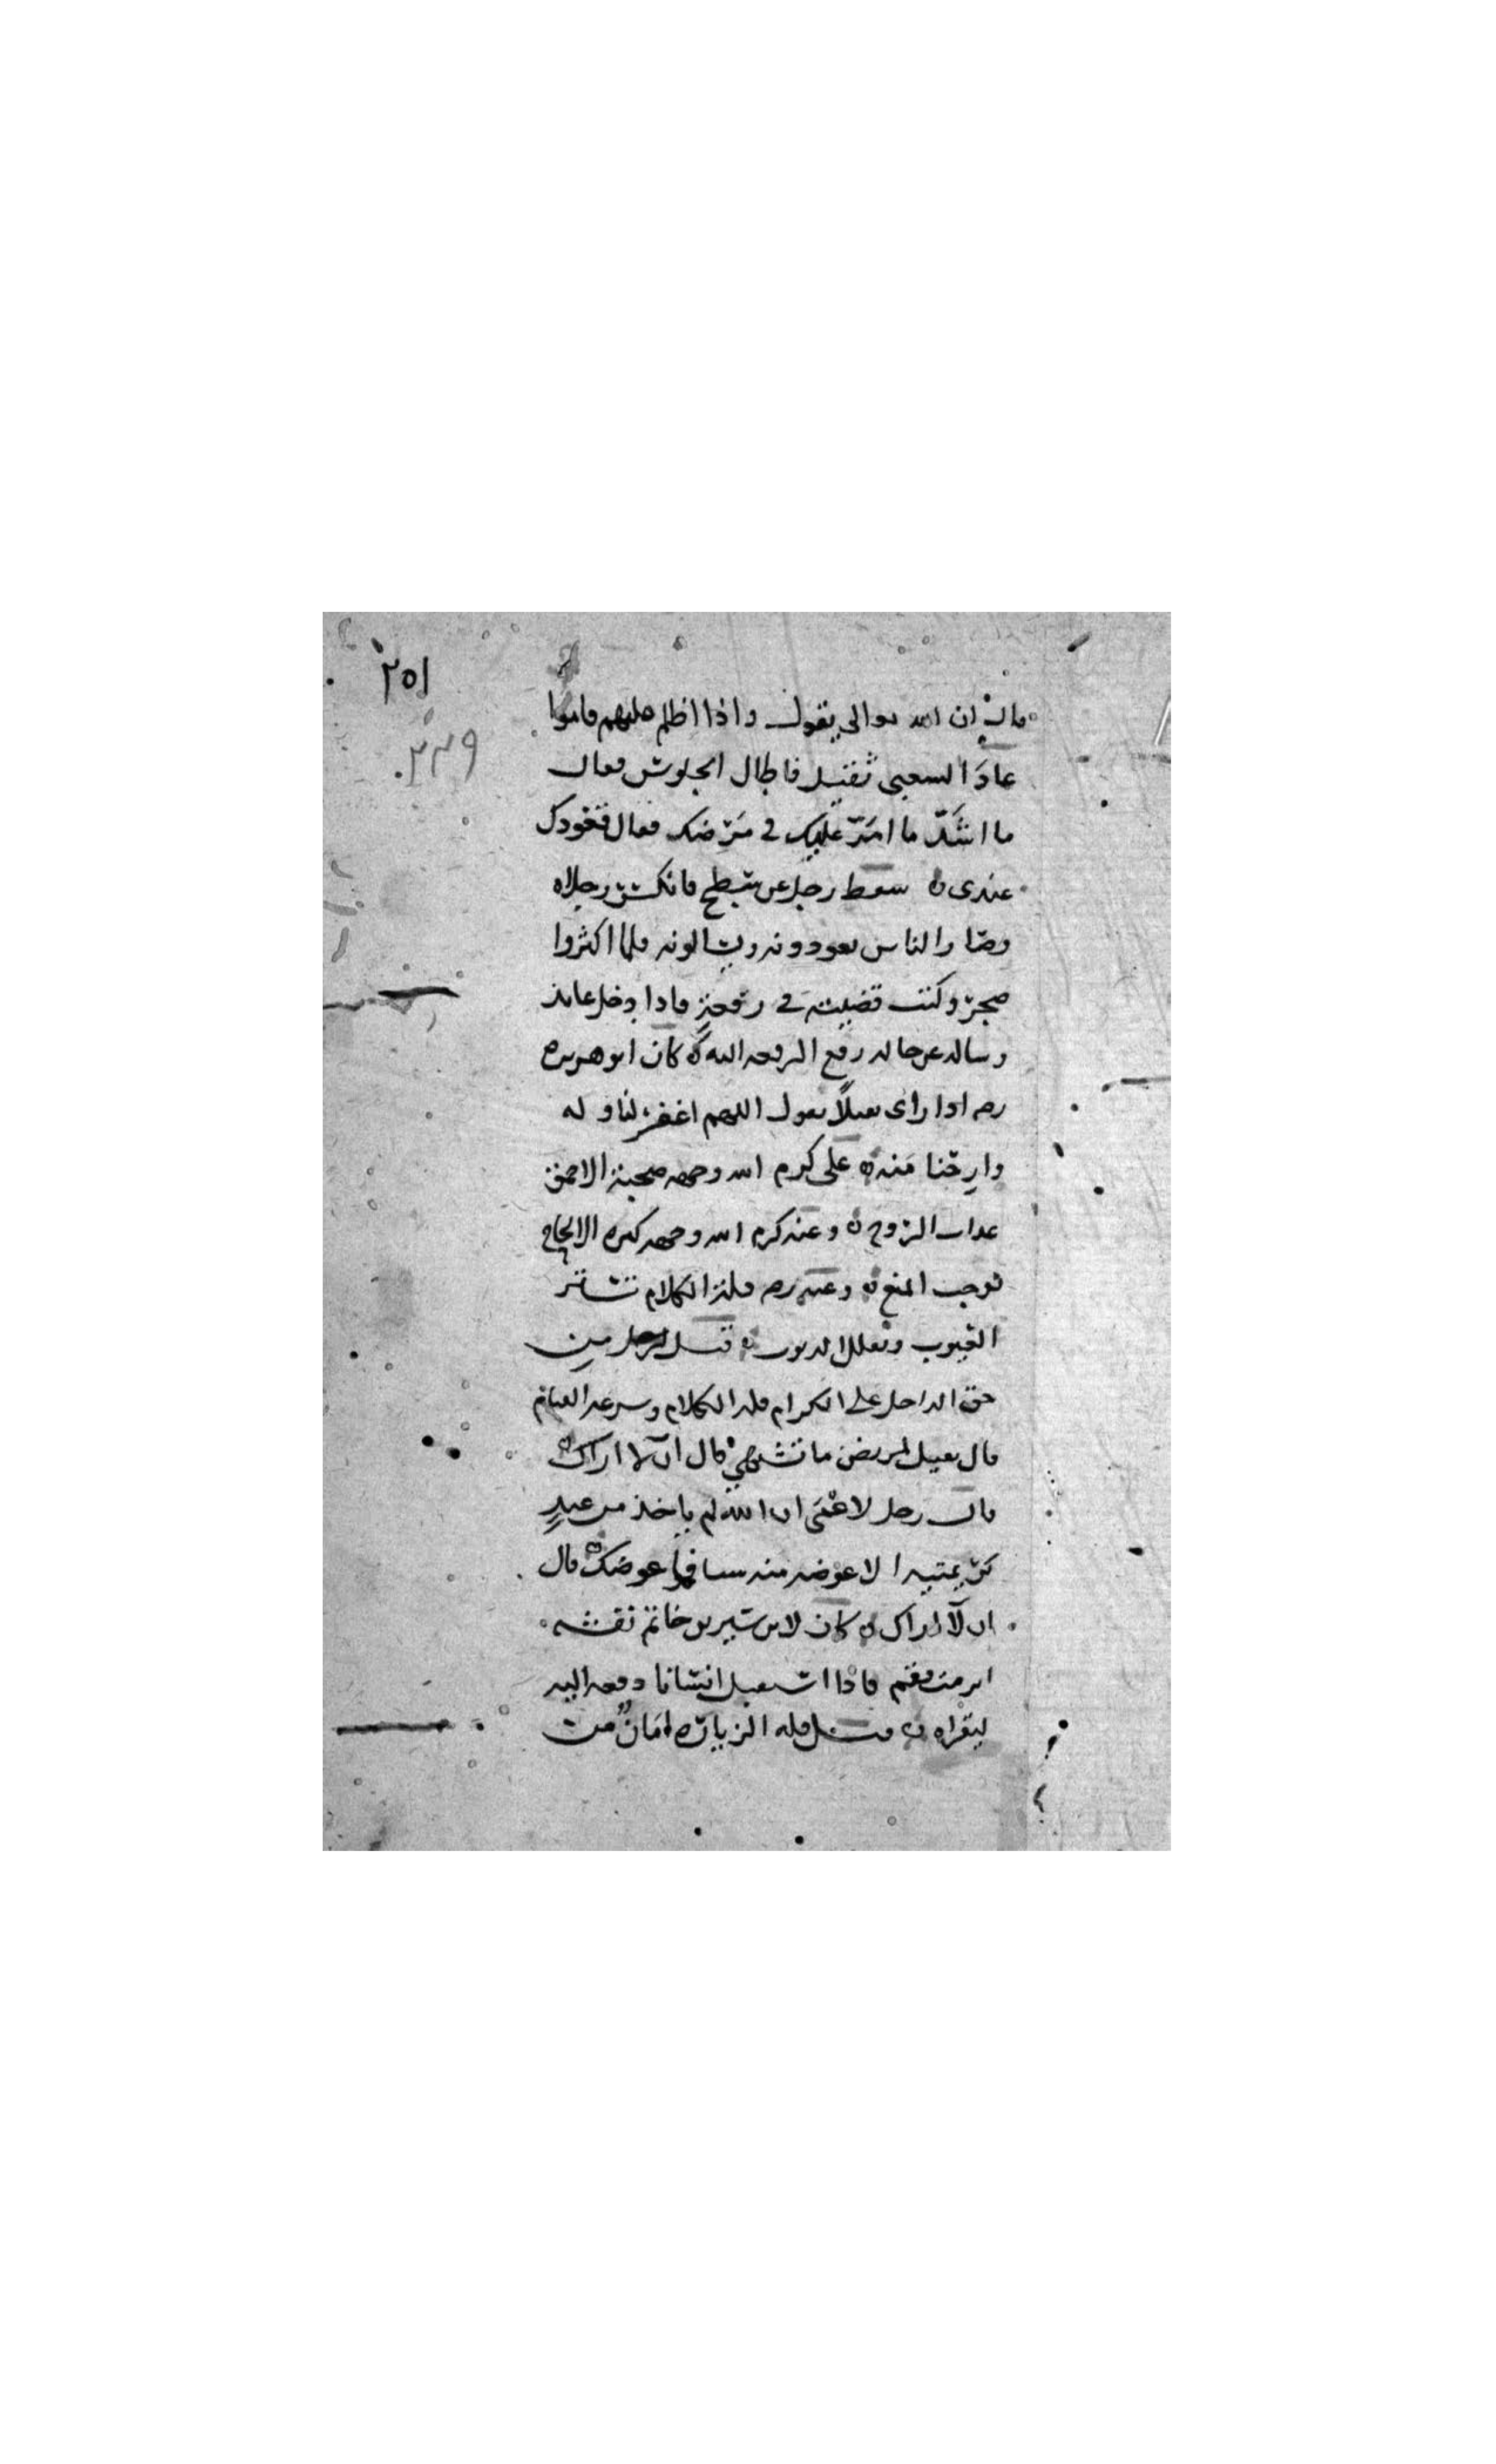 ٢٥١
٢٣٩
قال ان الله تعالى يقول واذا اظلم عليهم قاموا
عادَ الشعبي ثقيل فاطال الجلوس فقال
ما اشَدّ ما امَرّ عليك في مَرضك فقال قعودك
عندي ه سقط رجل عن سطح فانكسرت رجلاه
وصار الناس يعودونه ويسالونه فلما اكثروا
ضجر وكتب قصته في رقعةٍ فاذا دخل عائد
وساله عن حاله رفع الرقعه اليه ه كان ابو هريره
رضه اذا راى ثقيلاً يقول اللهم اغفر لنا وله
وارِحنا مَنه ه على كرم الله وجهه صحبة الاحمق
عذاب الروح ه وعنه كرم الله وجهه كثره الالحاح
توجب المنع ه وعنه رضه قلة الكلام تستر
العيوب وتقلل الذنوب ه قيل لرجل مِن
حق الداخل على الكرام قله الكلام وسرعه القيام
قال ثقيل لمريض ما تشتهي قال ان لا اراك ه
قال رجل لاعْمَى ان الله لم ياخذ من عبدٍ
كريمتيه الا عوضه منه شيا فما عوضك ه قال
ان لآ اراك ه كان لابن سيرين خاتم نقشه
ابرمت فقم فاذا استثقل انسانا دفعه اليه
ليقراه ه قيل قله الزياره امَانٌ من